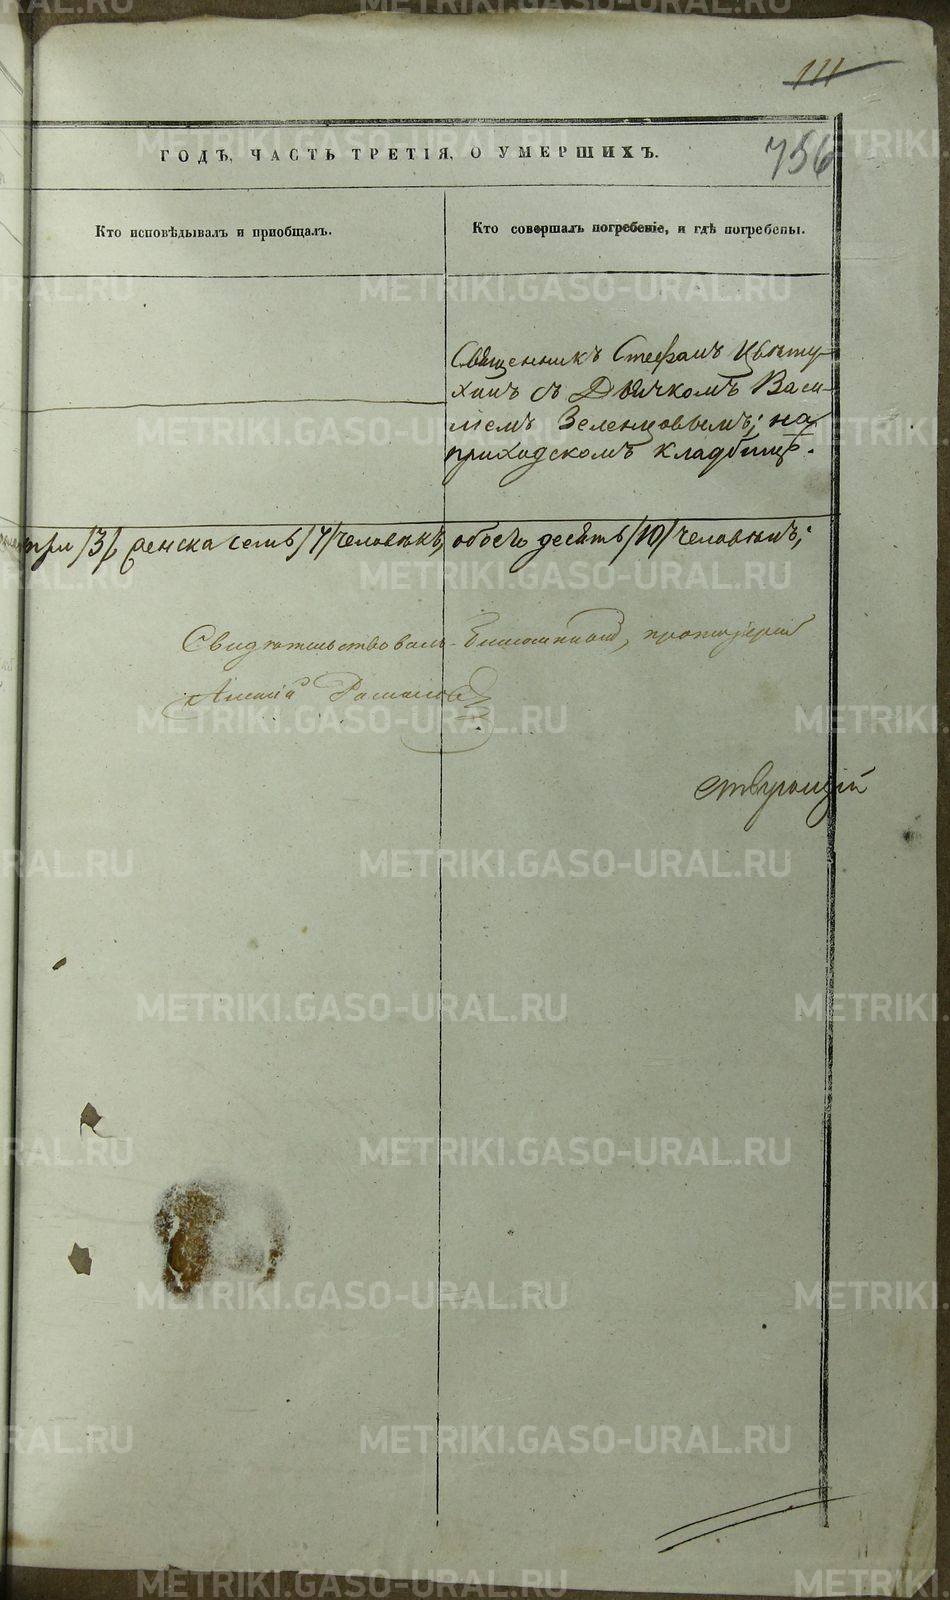 111
756
ГОДЪ, ЧАСТЬ ТРЕТІЯ, О УМЕРШИХЪ.
Кто исповѣдывалъ и приобщалъ.
Кто совершалъ погребеніе, и гдѣ погребены.
Священникъ Стефанъ Цвѣту-
хинъ съ Дьячкомъ Васи-
ліемъ Зеленцовымъ; на
приходскомъ кладбищѣ.
три /3/ женска семь /7/ человѣкъ, обоего десять /10/ человѣкъ;
Свидѣтельствовалъ протоіерей
ствующій
METRIKI.GASO-URAL.RU